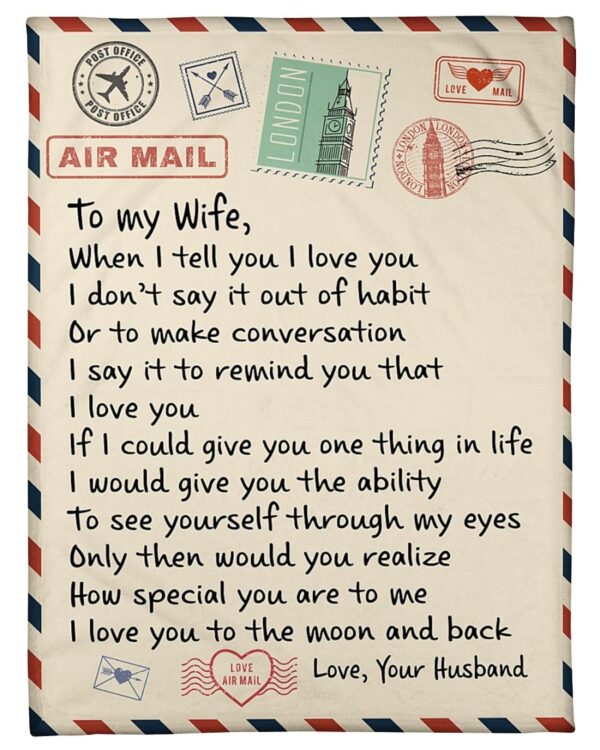 POST OFFICE
POST OFFICE
LONDON
LOVE MAIL
AIR MAIL
LONDON LONDON LONDON LONDON
To my Wife,
When I tell you I love you
I don't say it out of habit
Or to make conversation
I say it to remind you that
I love you
If I could give you one thing in life
I would give you the ability
To see yourself through my eyes
Only then would you realize
How special you are to me
I love you to the moon and back
LOVE
AIR MAIL
Love, Your Husband